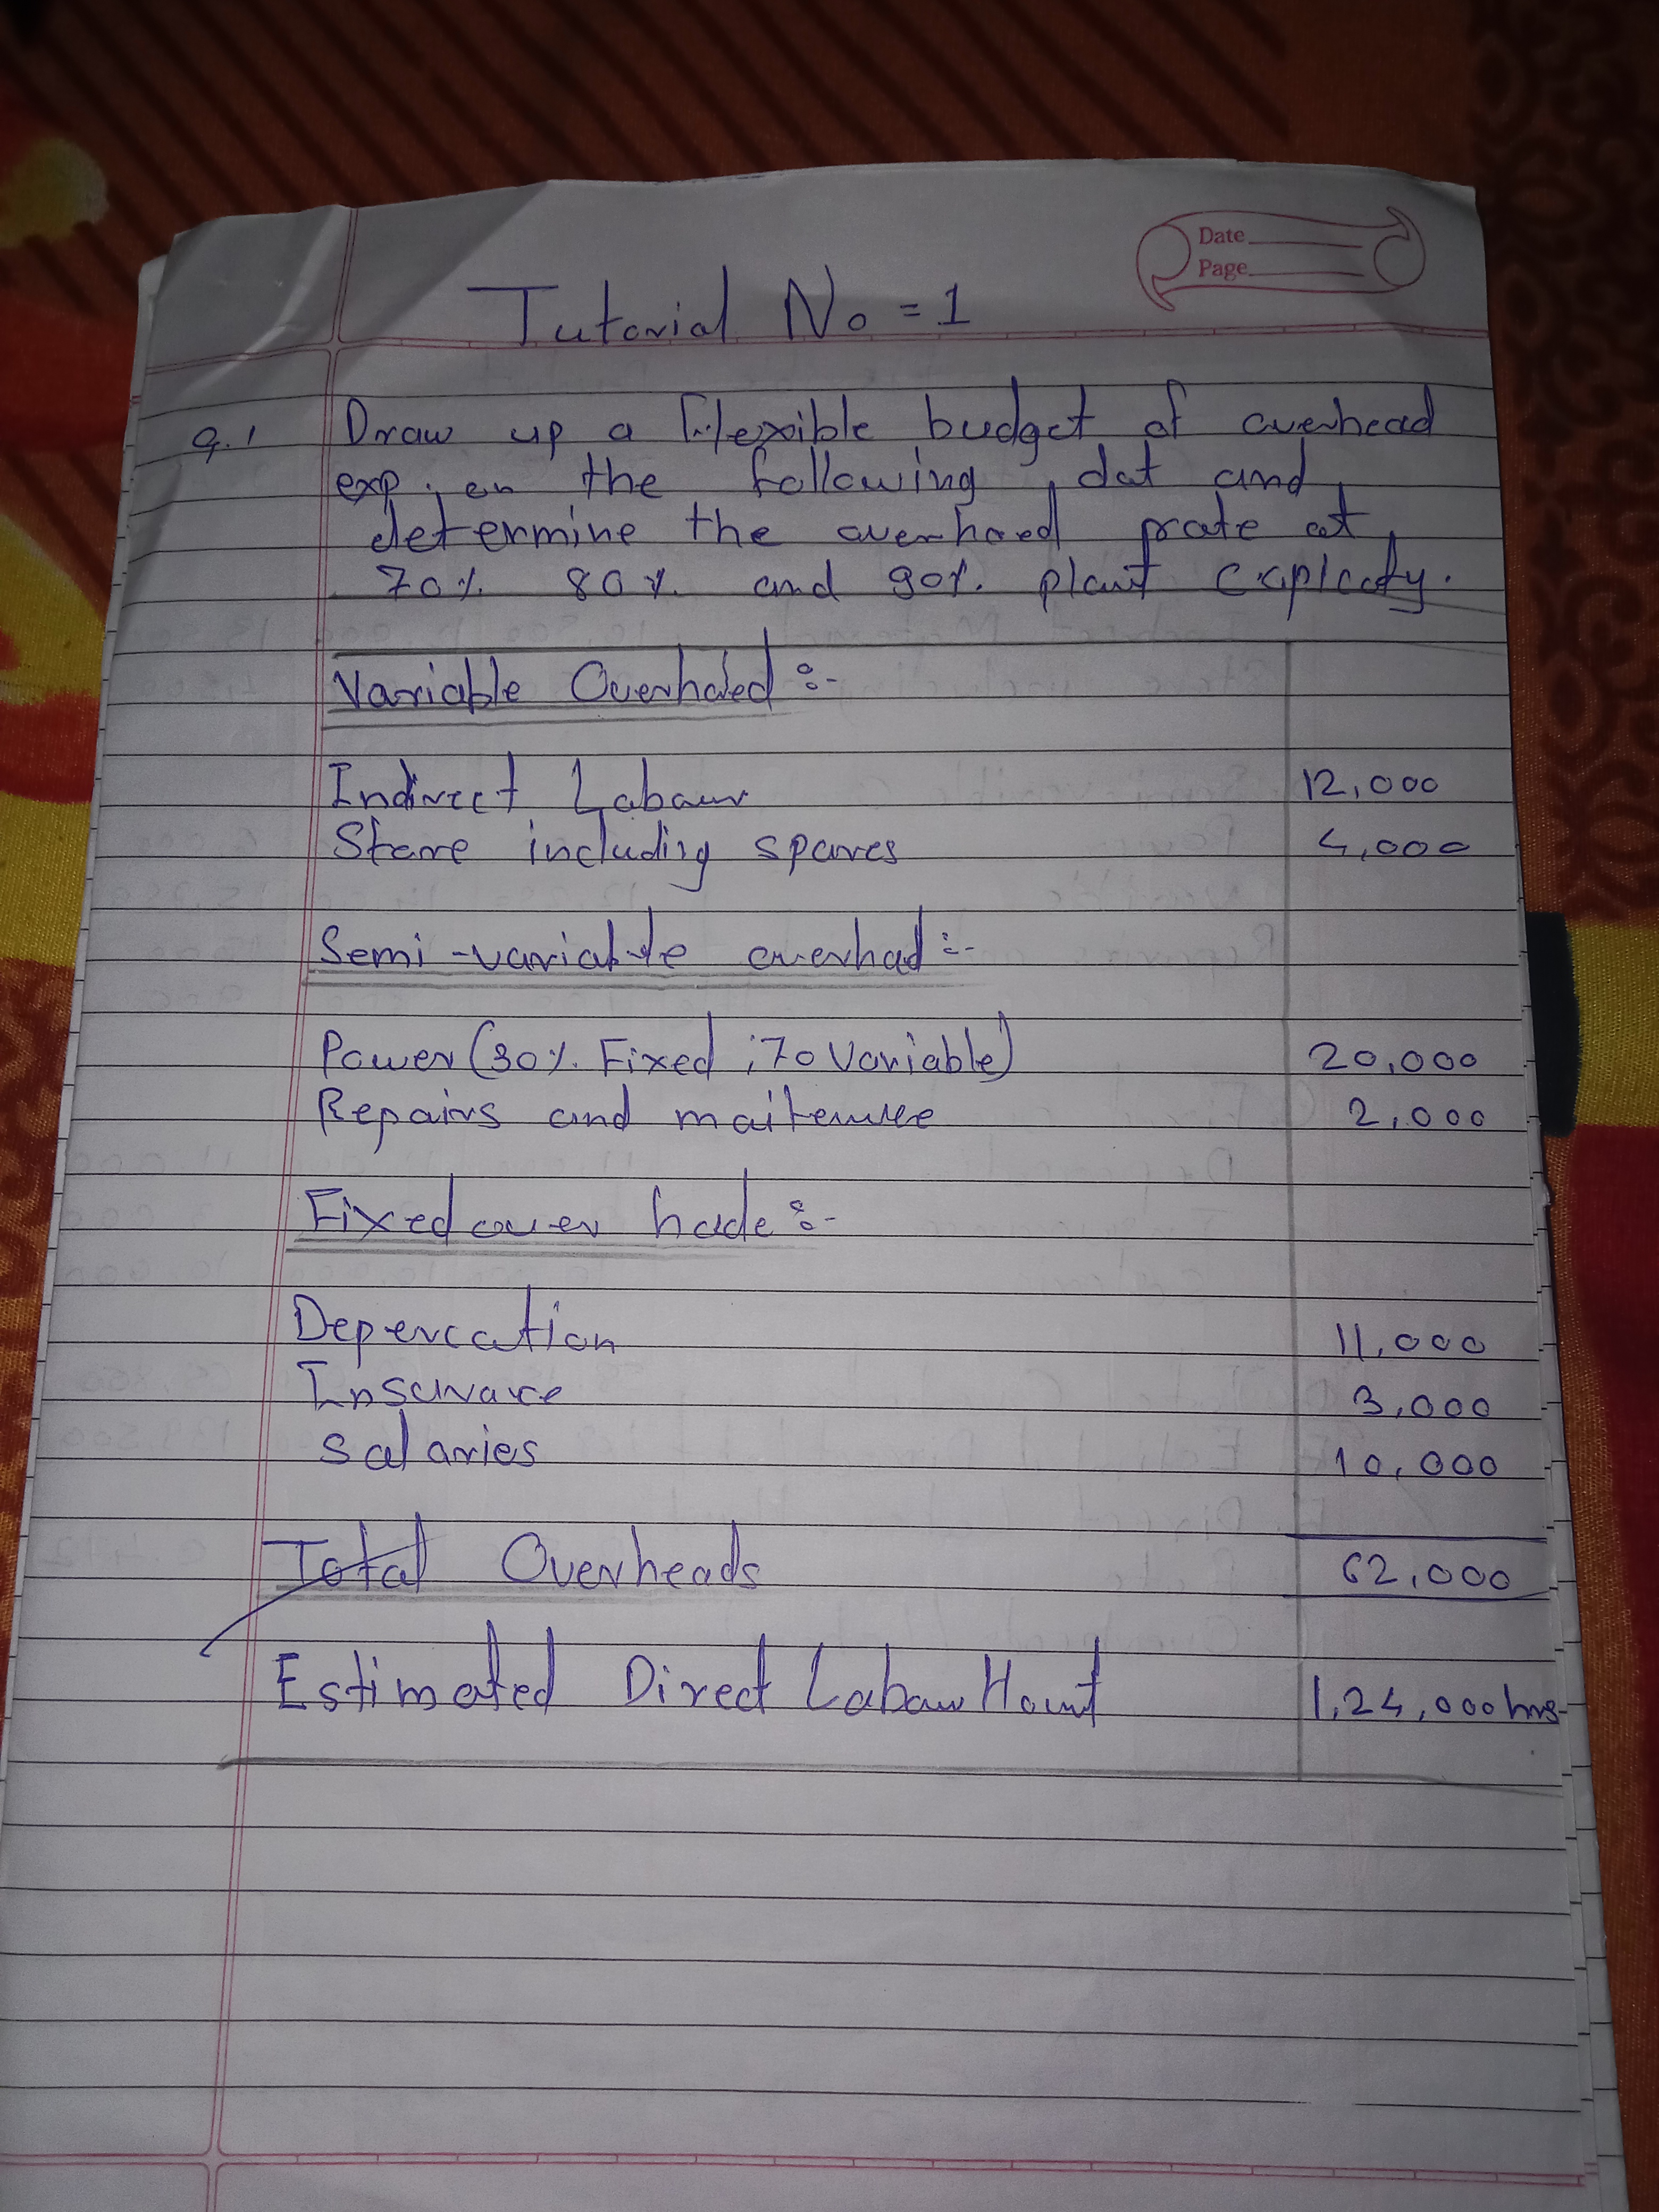 Date
Page
Tutorial No = 1
Q.1 Draw up a Flexible budget of overhead
exp. on the following dat and
determine the overhaed rate at
70% 80% and 90% plant
Variable Overhaed :-
Indirect Labour 12,000
Store including spares 4,000
Semi-variable overhad :-
Power (30% Fixed ; 70 Variable) 20,000
Repairs and 2,000
Fixed over hade :-
Depercation 11,000
Insurance 3,000
Salaries 10,000
Total Overheads 62,000
Estimated Direct Labour 1,24,000 hrs